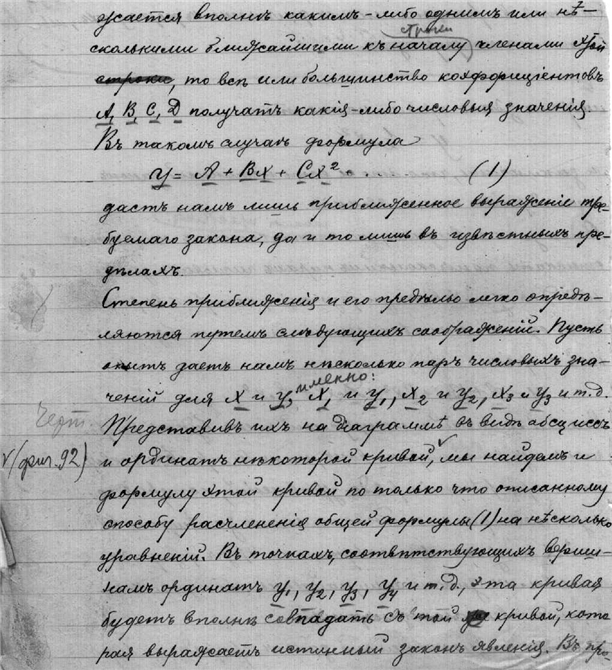 жается вполнѣ какимъ-либо однимъ или нѣ-
сколькими ближайшими къ началу членами этой
строки
строки, то всѣ или большинство коэффиціентовъ
A, B, C, D получатъ какія-либо числовыя значенія.
Въ такомъ случаѣ формула
y = A + Bx + Cx² + ..... (1)
дастъ намъ лишь приближенное выраженіе тре-
буемаго закона, да и то лишь въ извѣстныхъ пре-
дѣлахъ.
Степень приближенія и его предѣлы легко опредѣ-
ляются путемъ слѣдующихъ соображеній. Пусть
опытъ даетъ намъ нѣсколько паръ числовыхъ зна-
именно:
ченій для x и y, x₁ и y₁, x₂ и y₂, x₃ и y₃ и т.д.
Черт.
Представивъ ихъ на діаграммѣ въ видѣ абсциссъ
√(фиг. 92)
и ординатъ нѣкоторой кривой,√ мы найдемъ и
формулу этой кривой по только что описанному
способу расчлененія общей формулы (1) на нѣсколько
уравненій. Въ точкахъ, соотвѣтствующихъ верши-
намъ ординатъ y₁, y₂, y₃, y₄ и т.д., эта кривая
будетъ вполнѣ совпадать съ той кривой, кото-
рая выражаетъ истинный законъ явленія. Въ про-